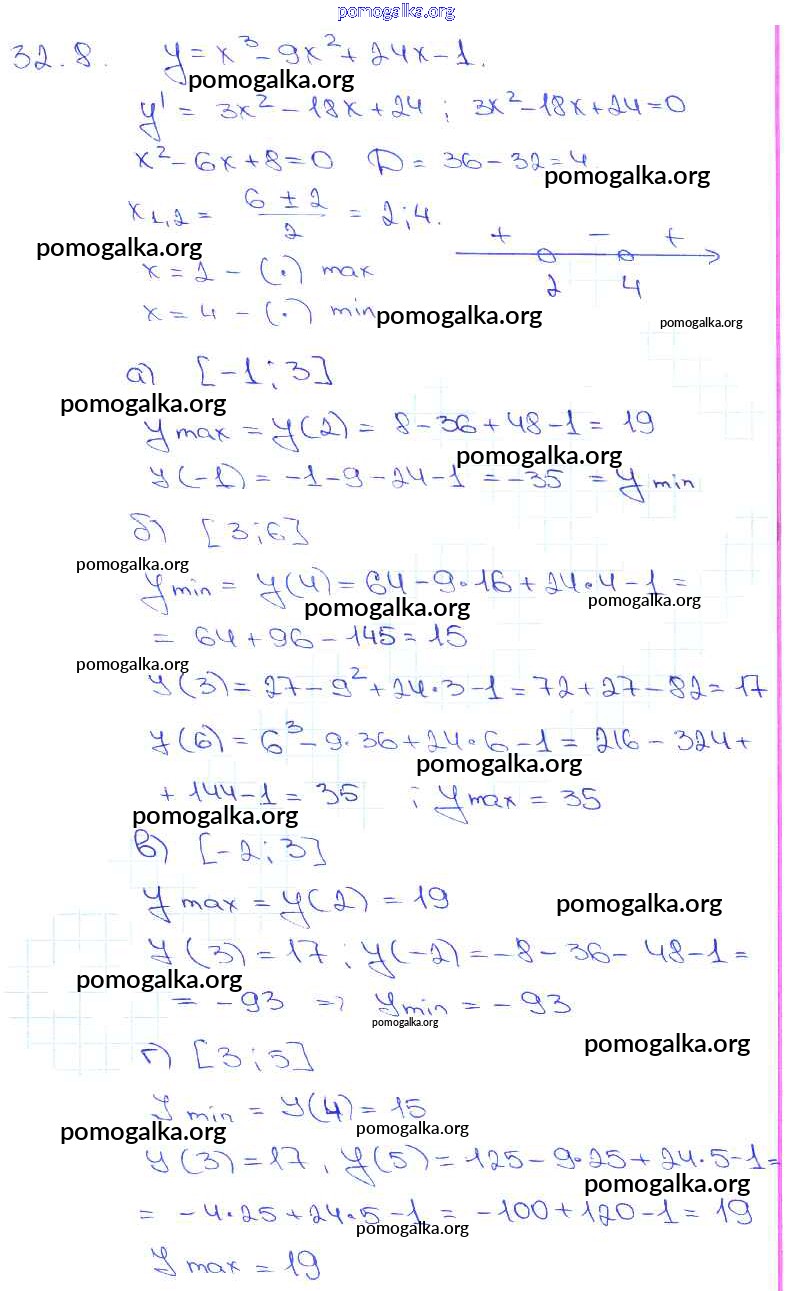 pomogalka.org
32.8. y = x³ - 9x² + 24x - 1.
pomogalka.org
y' = 3x² - 18x + 24 ; 3x² - 18x + 24 = 0
x² - 6x + 8 = 0 D = 36 - 32 = 4
pomogalka.org
x₁,₂ = (6 ± 2)/2 = 2; 4.
+ - +
pomogalka.org
x = 2 - (·) max
2 4
x = 4 - (·) min
pomogalka.org
pomogalka.org
а) [-1; 3]
pomogalka.org
y max = y(2) = 8 - 36 + 48 - 1 = 19
pomogalka.org
y(-1) = -1 - 9 - 24 - 1 = -35 = y min
б) [3; 6]
pomogalka.org
y min = y(4) = 64 - 9·16 + 24·4 - 1 =
pomogalka.org
pomogalka.org
= 64 + 96 - 145 = 15
pomogalka.org
y(3) = 27 - 9² + 24·3 - 1 = 72 + 27 - 82 = 17
y(6) = 6³ - 9·36 + 24·6 - 1 = 216 - 324 +
pomogalka.org
+ 144 - 1 = 35 ; y max = 35
pomogalka.org
в) [-2; 3]
y max = y(2) = 19
pomogalka.org
y(3) = 17 ; y(-2) = -8 - 36 - 48 - 1 =
pomogalka.org
= -93 => y min = -93
pomogalka.org
pomogalka.org
г) [3; 5]
y min = y(4) = 15
pomogalka.org
pomogalka.org
y(3) = 17, y(5) = 125 - 9·25 + 24·5 - 1 =
pomogalka.org
= -4·25 + 24·5 - 1 = -100 + 120 - 1 = 19
pomogalka.org
y max = 19